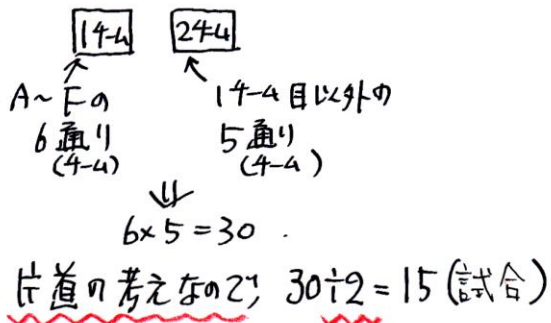 1チーム 2チーム
A〜Fの
6通り
(チーム)
1チーム目以外の
5通り
(チーム)
6×5=30.
片道の考えなので, 30÷2=15(試合)